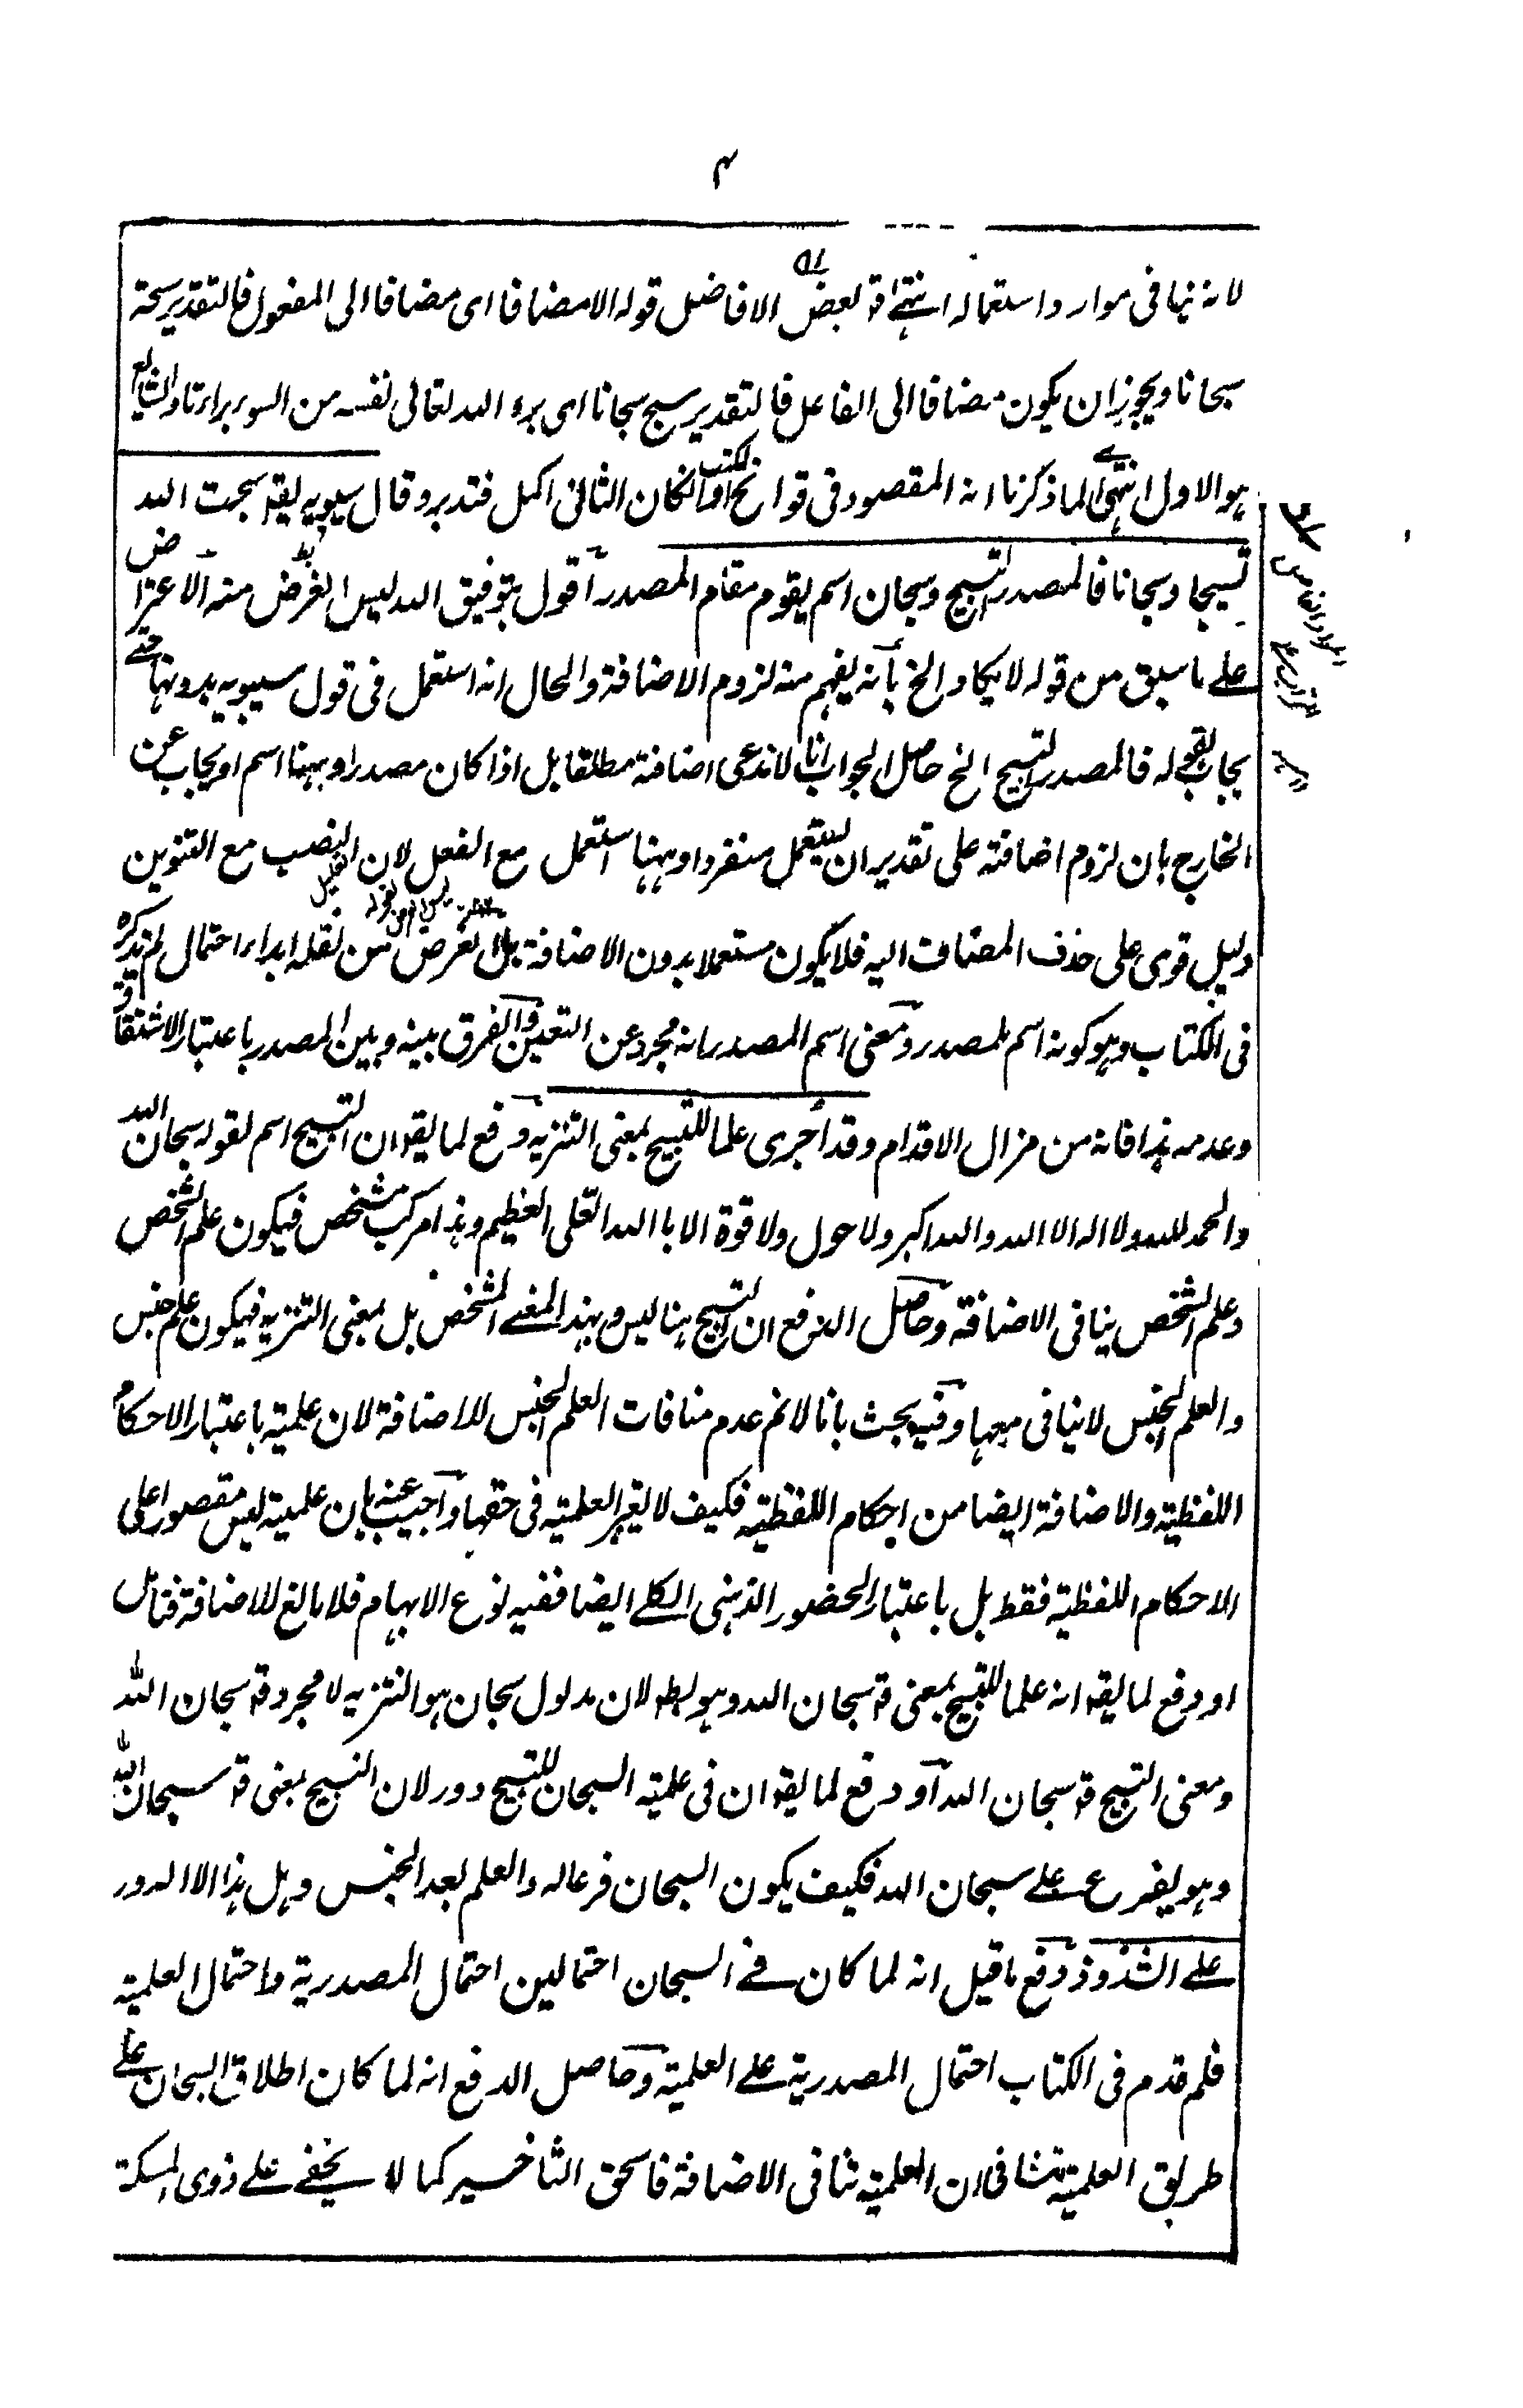 ۴
لانه ینافی موارد استعماله انتهی قد بعض الافاضل قوله الا مضافا ای مضافا الی المفعول فالتقدیر سبحته
سبحانا ویجوز ان یکون مضافا الی الفاعل فالتقدیر سبح سبحانا ای برء الله تعالی نفسه من السوء براءتا والشایع
هو الاول انتهی لما ذکرنا انه المقصود فی فواتح الکتب وانکان الثانی اکمل فتدبر وقال سیبویه یقو سبحت الله
تسبیحا وسبحانا فالمصدر التسبیح وسبحان اسم یقوم مقام المصدر اقول بتوفیق الله لیس الغرض منه الاعتراض
علی ما سبق من قوله لا یکاد الخ بانه یفهم منه لزوم الاضافة والحال انه استعمل فی قول سیبویه بدونها حتی
یجاب بقوله فالمصدر التسبیح الخ حاصل الجواب انا لا ندعی اضافة مطلقا بل اذا کان مصدرا وههنا اسم او یجاب عن
الخارج بان لزوم اضافته علی تقدیر ان یستعمل منفردا وههنا استعمل مع الفعل لان النصب مع التنوین
دلیل قوی علی حذف المضاف الیه فلا یکون مستعملا بدون الاضافة بل الغرض من نقله ابداء احتمال لم یذکره
فی الکتاب وهو کونه اسم لمصدر ومعنی اسم المصدر انه مجرد عن التعین والفرق بینه وبین المصدر باعتبار الاشتقاق
وعدمه هذا فانه من مزال الاقدام وقد اجری علما للتسبیح بمعنی التنزیه دفع لما یقو ان التسبیح اسم لقوله سبحان الله
والحمد لله ولا اله الا الله والله اکبر ولا حول ولا قوة الا بالله العلی العظیم وهذا مرکب مشخص فیکون علم الشخص
وعلم الشخص ینافی الاضافة وحاصل الدفع ان التسبیح هنا لیس بهذا المعنی المشخص بل بمعنی التنزیه فیکون علم جنس
والعلم الجنس لا ینافی معها وفیه بحث بانا لانم عدم منافات العلم الجنس للاضافة لان علمیته باعتبار الاحکام
اللفظیة والاضافة ایضا من احکام اللفظیة فکیف لا یغیر العلمیة فی حقها واجیب عنه بان علمیته لیس مقصورا علی
الاحکام اللفظیة فقط بل باعتبار الحضور الذهنی الکلی ایضا ففیه نوع الابهام فلا مانع للاضافة فتامل
او دفع لما یقو انه علما للتسبیح بمعنی قو سبحان الله وهو بط لان مدلول سبحان هو التنزیه لا مجرد قو سبحان الله
ومعنی التسبیح قو سبحان الله او دفع لما یقو ان فی علمیته السبحان للتسبیح دور لان التسبیح بمعنی قو سبحان الله
وهو یفرع علی سبحان الله فکیف یکون السبحان فرعا له والعلم بعد الجنس وهل هذا الا الدور
علی الشذوذ دفع ما قیل انه لما کان فی السبحان احتمالین احتمال المصدریة واحتمال العلمیة
فلم قدم فی الکتاب احتمال المصدریة علی العلمیة وحاصل الدفع انه لما کان اطلاق السبحان علی
طریق العلمیة شاذ فی ان العلمیة تنافی الاضافة فاسحق التاخیر کما لا یخفی علی ذوی المسکة